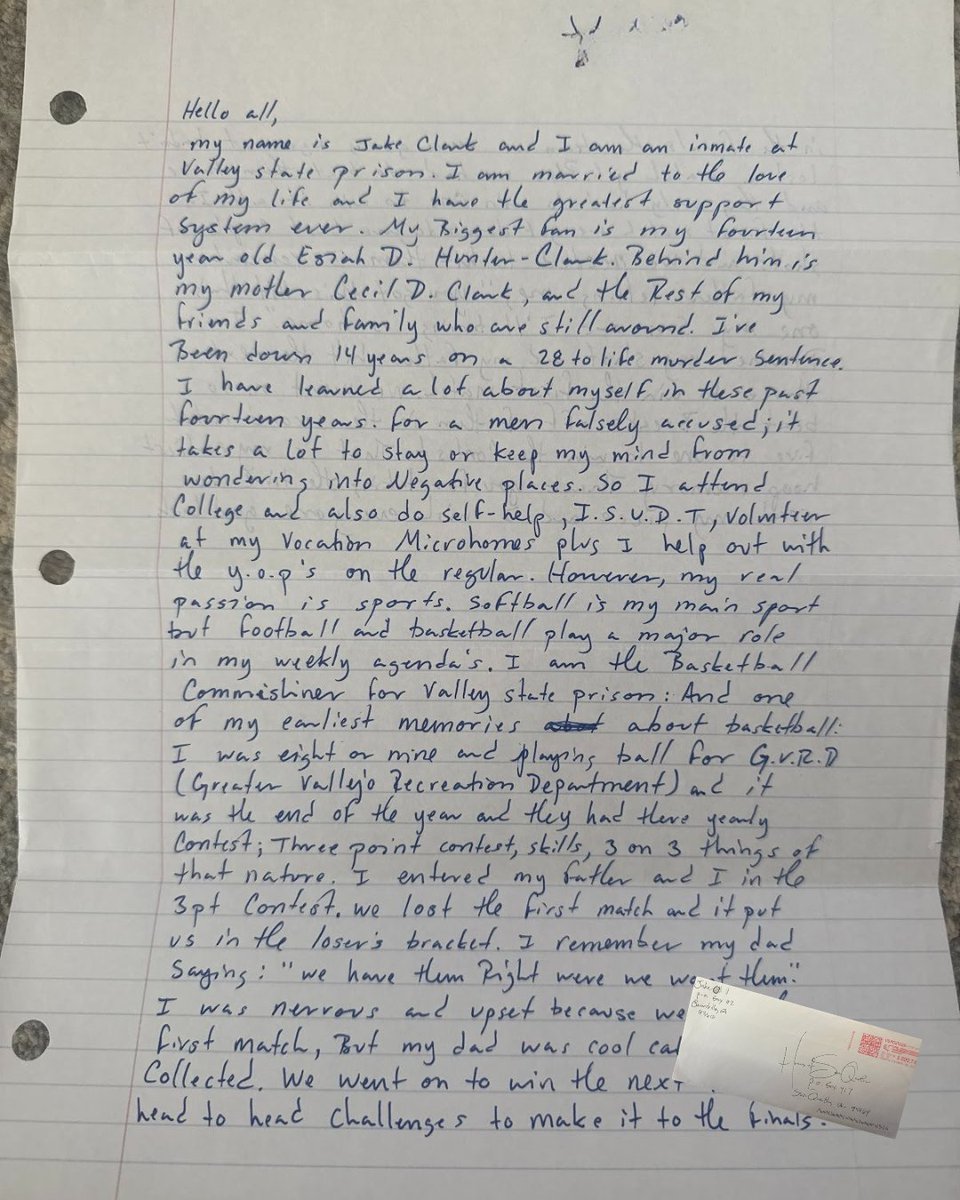 Hello all,
my name is Jake Clark and I am an inmate at
Valley state prison. I am married to the love
of my life and I have the greatest support
system ever. My Biggest fan is my fourteen
year old Esiah D. Hunter-Clark. Behind him is
my mother Cecil D. Clark, and the Rest of my
friends and family who are still around. I've
Been down 14 years on a 28 to life murder sentence.
I have learned a lot about myself in these past
fourteen years. for a men falsely accused; it
takes a lot to stay or keep my mind from
wondering into Negative places. So I attend
College and also do self-help, I.S.U.D.T, Volunteer
at my Vocation Microhomes plus I help out with
the y.o.p's on the regular. However, my real
passion is sports. Softball is my main sport
but football and basketball play a major role
in my weekly agenda's. I am the Basketball
Commisliner for Valley state prison: And one
of my earliest memories about basketball:
I was eight or nine and playing ball for G.V.R.D
(Greater Vallejo Recreation Department) and it
was the end of the year and they had there yearly
Contest; Three point contest, skills, 3 on 3 things of
that nature. I entered my father and I in the
3pt Contest. we lost the first match and it put
us in the loser's bracket. I remember my dad
Saying: "we have them Right were we want them."
I was nervous and upset because we
first match, But my dad was cool
Collected. We went on to win the next
head to head challenges to make it to the finals.
Jake
P.O. Box